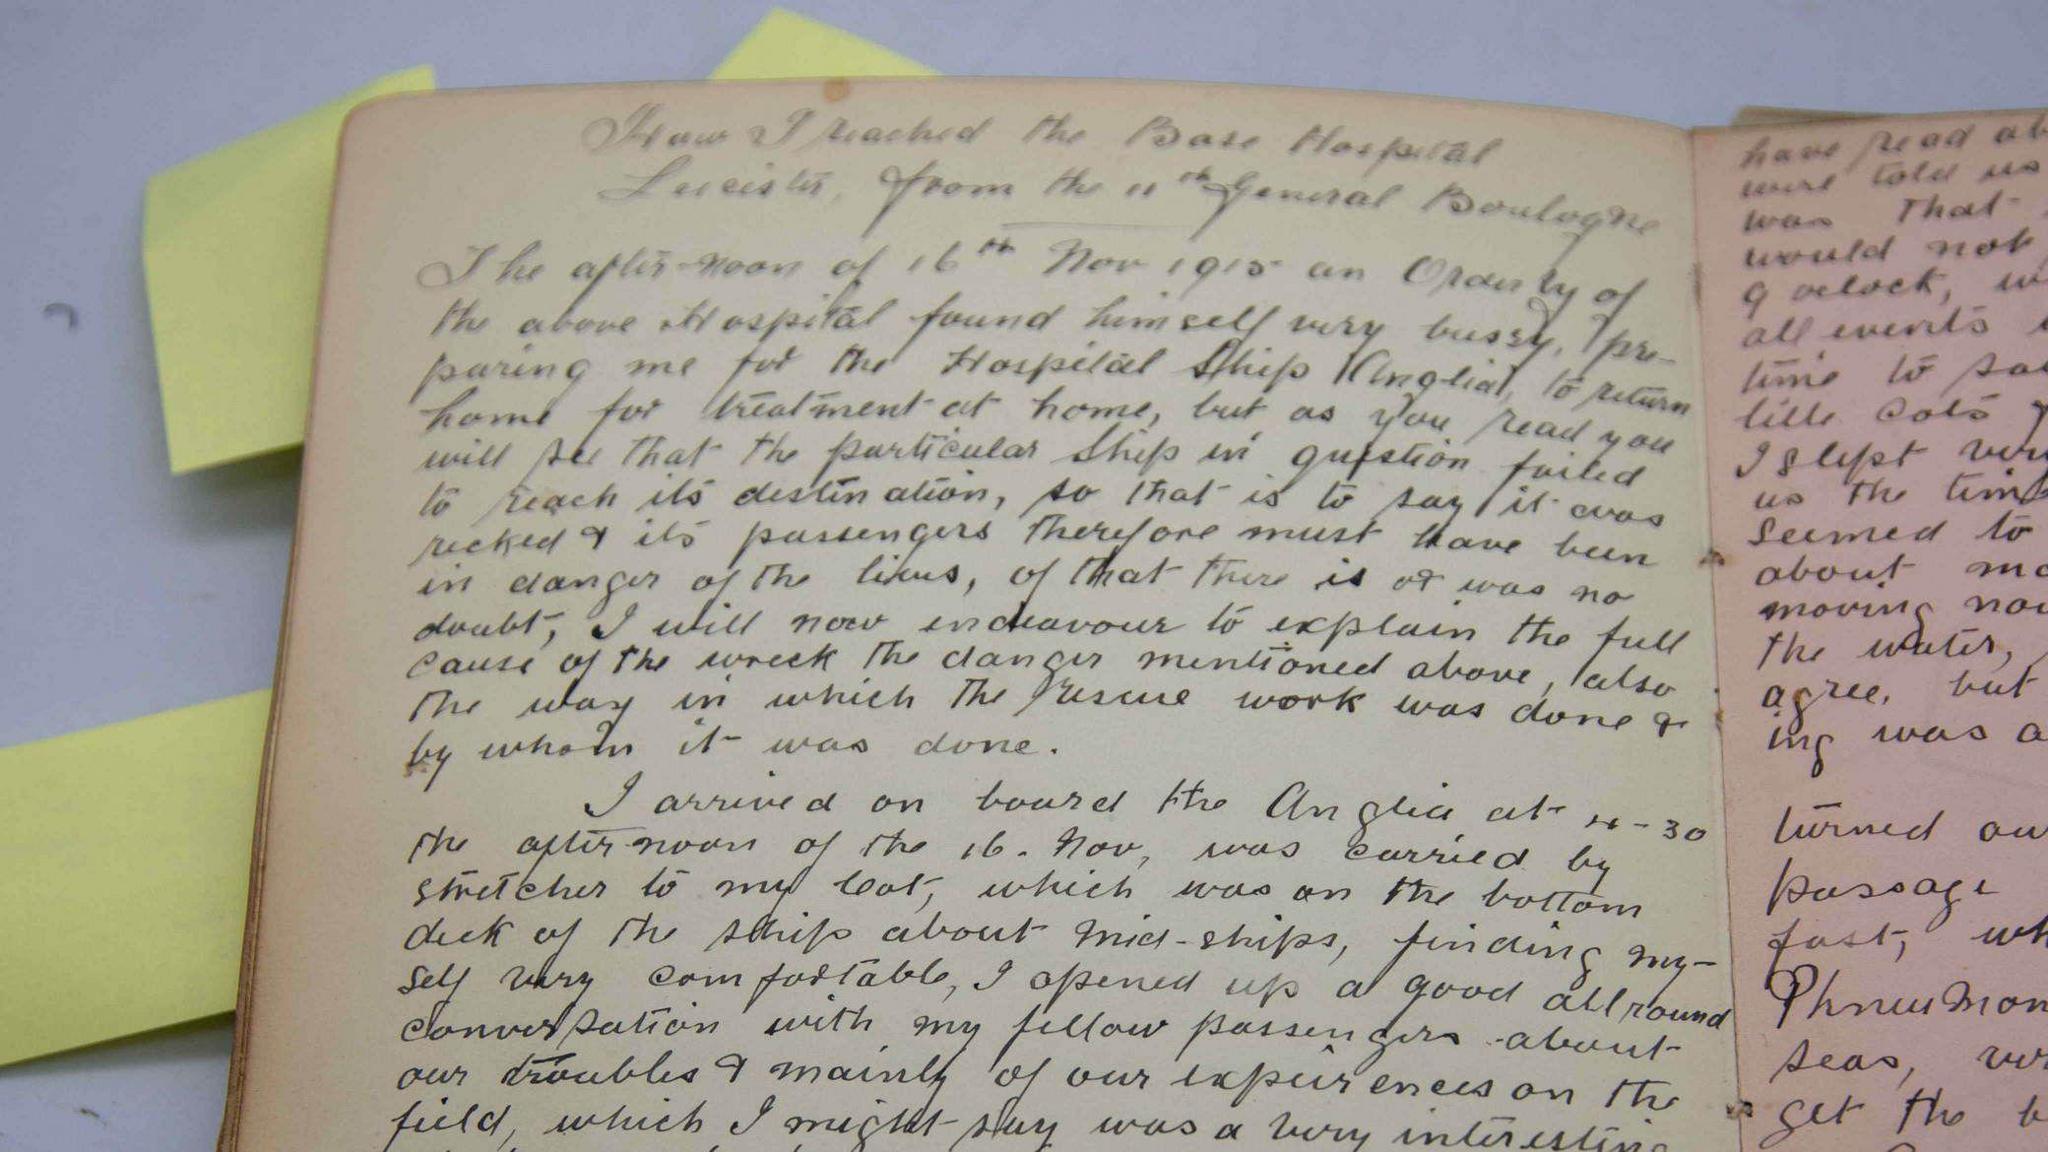 How I reached the Base Hospital
Leicester, from the 11th General Boulogne
The after-noon of 16th Nov 1915 an Orderly of
the above Hospital found himself very bussy, pre-
paring me for the Hospital Ship (Anglia), to return
home for treatment at home, but as you read you
will see that the particular Ship in question failed
to reach its destination, so that is to say it was
recked & its passengers therefore must have been
in danger of the lives, of that there is or was no
doubt, I will now endeavour to explain the full
cause of the wreck the danger mentioned above, also
the way in which the rescue work was done &
by whom it was done.
I arrived on board the Anglia at 4-30
the after-noon of the 16. Nov, was carried by
stretcher to my cot, which was on the bottom
deck of the ship about mid-ships, finding my-
self very comfortable, I opened up a good all round
conversation with my fellow passengers about
our troubles & mainly of our expeirences on the
field, which I might say was a very interesting
have read ab
were told us
was that
would not
9 oclock, w
all events
time to sa
little cots
I slept ver
us the time
seemed to
about mo
moving now
the water,
agree, but
ing was a
turned ou
passage
fast, wh
Phneumon
seas, ver
get the b